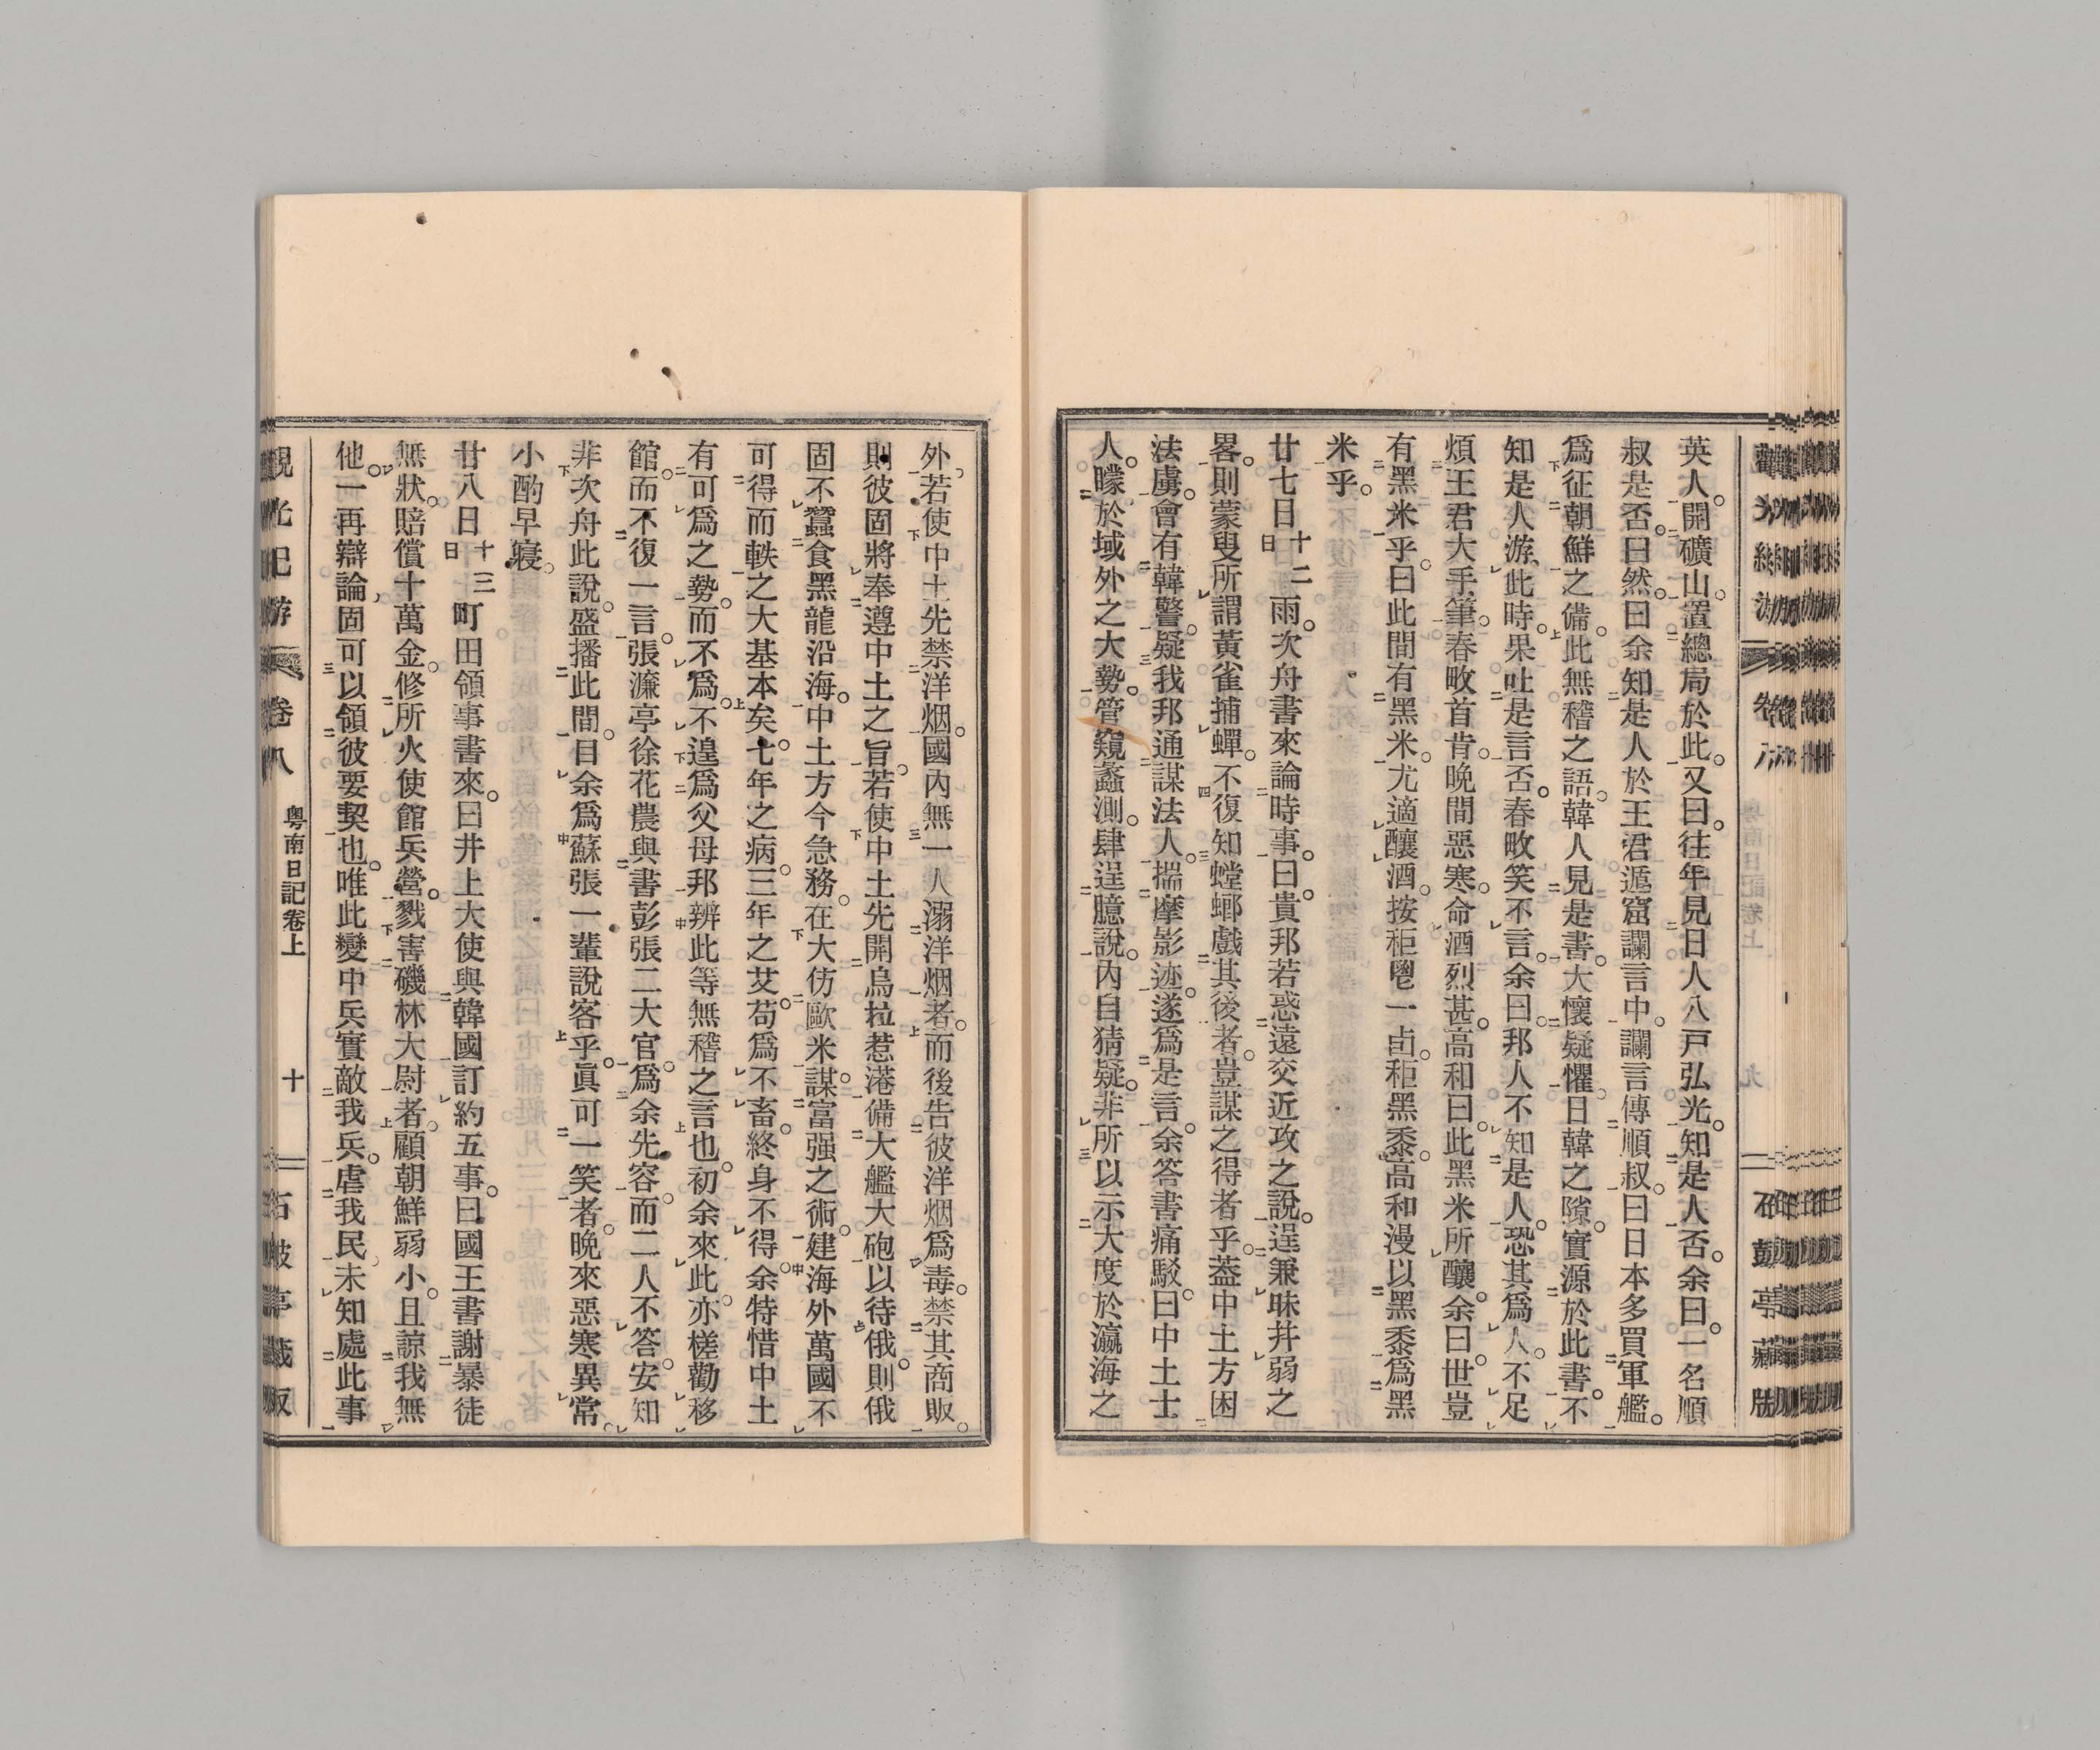 英人。開礦山。置總局於此。又曰。往年見日人八戸弘光。知是人否。余曰。一名順
叔是否。曰然。曰余知是人於王君遯窟讕言中。讕言傳順叔。曰日本多買軍艦。
爲征朝鮮之備。此無稽之語。韓人見是書。大懷疑懼。日韓之隙。實源於此書。不
知是人游此時。果吐是言否。春畋笑不言。余曰。邦人不知是人。恐其爲人。不足
煩王君大手筆。春畋首肯。晩間惡寒。命酒烈甚。高和曰。此黑米所釀。余曰。世豈
有黑米乎。曰此間有黑米。尤適釀酒。按秬鬯一卣。秬黑黍。高和漫以黑黍爲黑
米乎。
廿七日十二日雨。次舟書來論時事。曰。貴邦若惑遠交近攻之說。逞兼昧幷弱之
畧。則蒙叟所謂黃雀捕蟬。不復知螳螂戲其後者。豈謀之得者乎。葢中土方困
法虜。會有韓警。疑我邦通謀法人。揣摩影迹。遂爲是言。余答書痛駁。曰中土士
人。矇於域外之大勢。管窺蠡測。肆逞臆說。內自猜疑。非所以示大度於瀛海之
外。若使中土先禁洋烟。國內無一人溺洋烟者。而後告彼洋烟爲毒。禁其商販。
則彼固將奉遵中土之旨。若使中土先開烏拉惹港。備大艦大砲以待俄。則俄
固不蠶食黑龍沿海。中土方今急務。在大仿歐米。謀富强之術。建海外萬國不
可得而軼之大基本矣。七年之病。三年之艾。苟爲不畜。終身不得。余特惜中土
有可爲之勢。而不爲。不遑爲父母邦辨此等無稽之言也。初余來此。亦槎勸移
館。而不復一言。張濂亭徐花農與書彭張二大官。爲余先容。而二人不答。安知
非次舟此說。盛播此間。目余爲蘇張一輩說客乎。眞可一笑者。晩來惡寒異常。
小酌早寢。
廿八日十三日町田領事書來。曰井上大使與韓國訂約五事。曰國王書謝暴徒
無狀。賠償十萬金。修所火使館兵營。戮害磯林大尉者。顧朝鮮弱小。且諒我無
他。一再辯論。固可以領彼要契也。唯此變中兵實敵我兵。虐我民。未知處此事
觀光紀游 卷八 粤南日記卷上 十 石鼓亭藏版